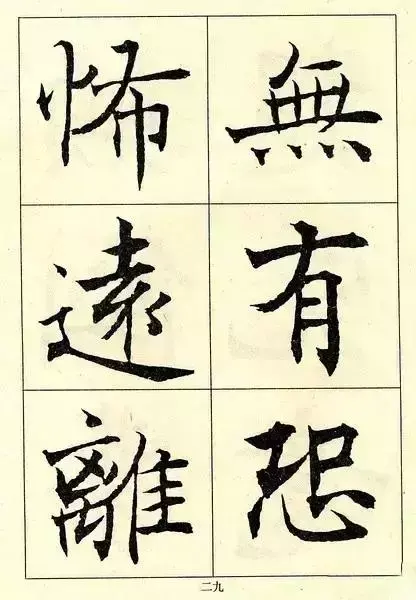 無有恐
怖遠離
二九